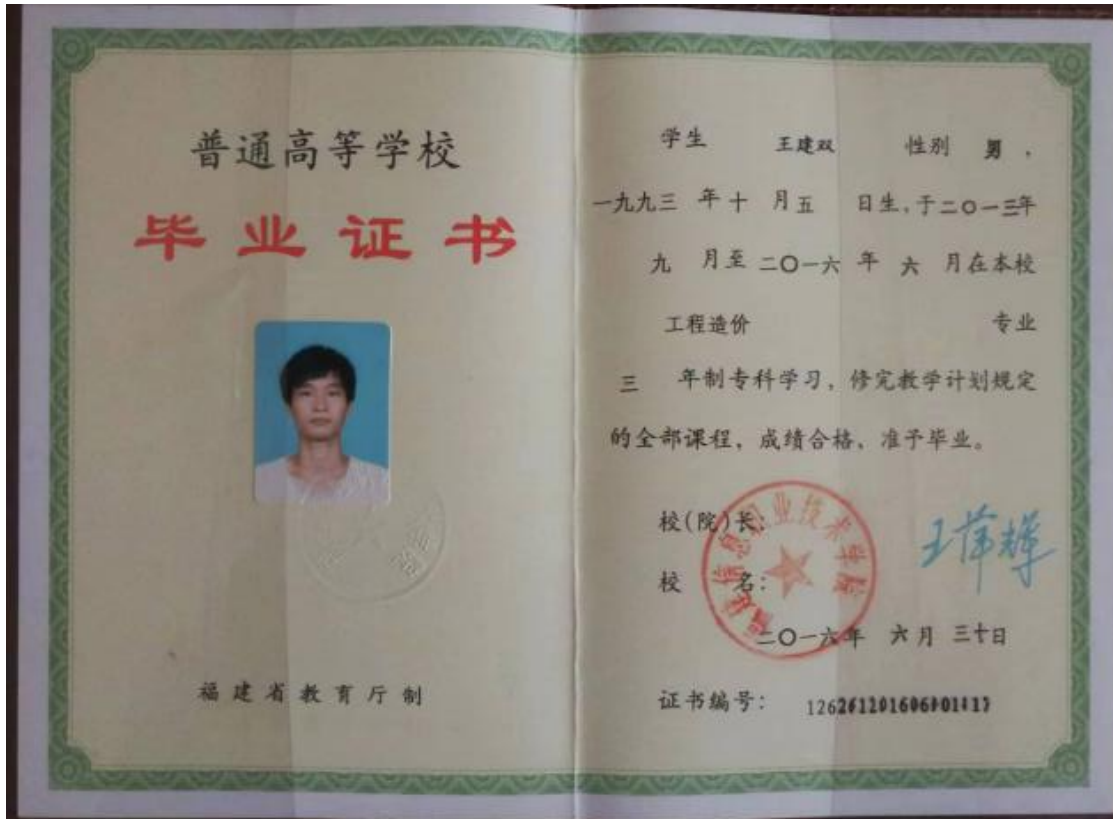 普通高等学校
毕业证书
福建省教育厅制
学生 王建双 性别 男，
一九九三 年 十 月 五 日生，于二〇一三年
九 月至 二〇一六 年 六 月在本校
工程造价 专业
三 年制专科学习，修完教学计划规定
的全部课程，成绩合格，准予毕业。
校(院)长：
福建信息职业技术学院
校 名：
二〇一六年 六月 三十日
证书编号：